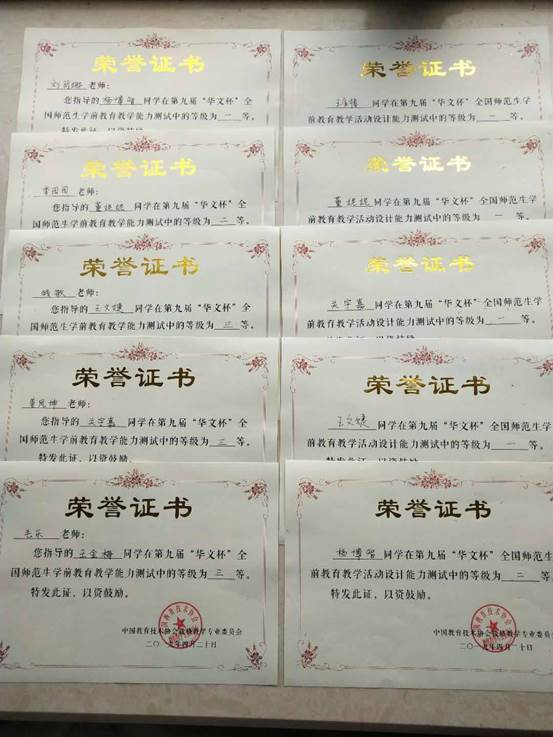 荣誉证书
老师:
您指导的杨博智同学在第九届“华文杯”全
国师范生学前教育教学能力测试中的等级为一等。
特发此证，以资鼓励
荣誉证书
同学在第九届“华文杯”全国师范生学
前教育教学活动设计能力测试中的等级为二等
荣誉证书
李园园 老师:
您指导的董媛媛同学在第九届“华文杯”全
国师范生学前教育教学能力测试中的等级为二等。
荣誉证书
董媛媛同学在第九届“华文杯”全国师范生学
前教育教学活动设计能力测试中的等级为一等
荣誉证书
钱敏 老师:
您指导的王文婕同学在第九届“华文杯”全
国师范生学前教育教学能力测试中的等级为三等。
荣誉证书
关宇嘉同学在第九届“华文杯”全国师范生学
前教育教学活动设计能力测试中的等级为一等
荣誉证书
老师:
您指导的关宇嘉同学在第九届“华文杯”全
国师范生学前教育教学能力测试中的等级为三等。
特发此证，以资鼓励。
荣誉证书
王文婕同学在第九届“华文杯”全国师范生学
前教育教学活动设计能力测试中的等级为一等
特发此证，以资鼓励。
荣誉证书
毛乐 老师:
您指导的王金梅同学在第九届“华文杯”全
国师范生学前教育教学能力测试中的等级为三等。
特发此证，以资鼓励。
中国教育技术协会微格教学专业委员会
二〇一九年四月二十日
荣誉证书
杨博智同学在第九届“华文杯”全国师范生学
前教育教学活动设计能力测试中的等级为二等
特发此证，以资鼓励。
中国教育技术协会微格教学专业委员会
二〇一九年四月二十日